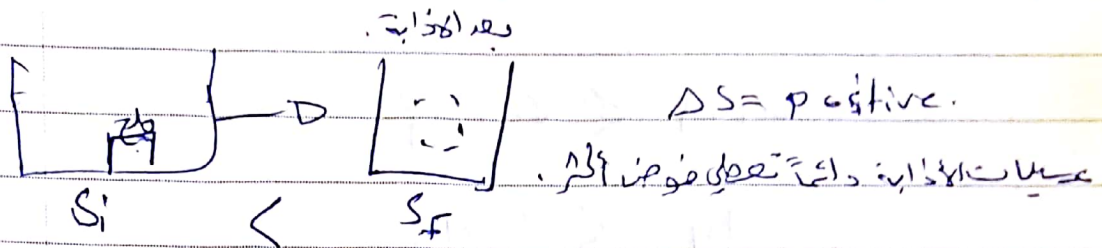 بعد الإذابة.
ملح
ΔS = positive.
عمليات الإذابة دائمًا تعطي فوضى أكثر.
Si < Sf